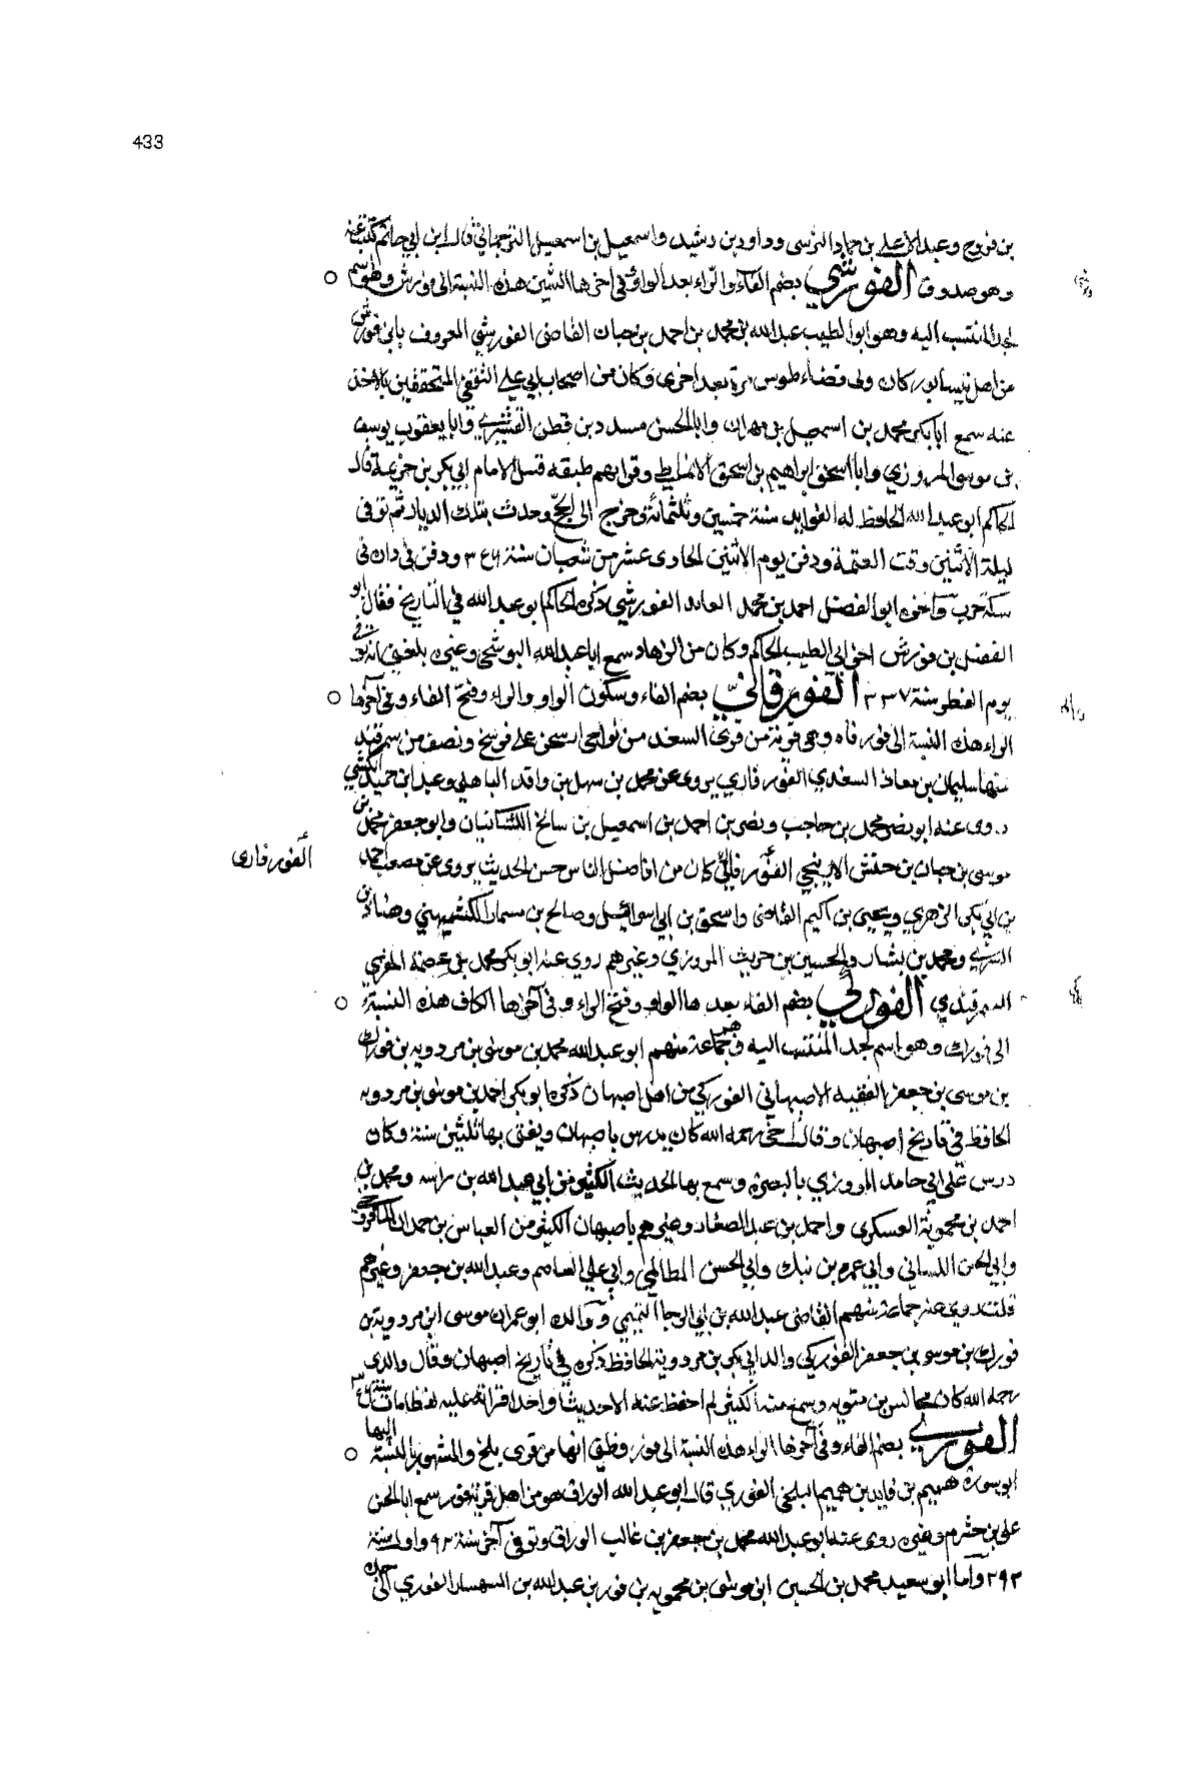 433
بن فروج وعبد الاعلى بن حماد النرسى وداود بن رشيد واسمعيل بن اسمعيل الترجمانى قال ابن ابى حاتم كتبت عنه
وهو صدوق الفورشى بضم الفاء والراء بعد الواو وفى اخرها الشين هذه النسبة الى فورش وهو اسم
لجد المنتسب اليه وهو ابو الطيب عبد الله بن محمد بن احمد بن حيان القاضى الفورشى المعروف بابن فورش
من اهل نيسابور كان ولى قضاء طوس مرة بعد اخرى وكان من اصحاب ابى على الثقفى المتحققين بالاخذ
عنه سمع ابا بكر محمد بن اسمعيل بن مهران وابا الحسن مسدد بن قطن القشيرى وابا يعقوب يوسف
بن موسى المروزى وابا اسحق ابراهيم بن اسحق الانماطى وقرابهم طبقة قبل الامام ابى بكر بن خزيمة قال
الحاكم ابو عبد الله الحافظ له الفوايد سنة خمسين وثلثمائة وخرج الى الحج وحدث بتلك الديار ثم توفى
ليلة الاثنين وقت العتمة ودفن يوم الاثنين الحادى عشر من شعبان سنة ٣٤٦ ودفن فى داره فى
سكة حرب واخوه ابو الفضل احمد بن محمد العابد الفورشى ذكره الحاكم ابو عبد الله فى التاريخ فقال ابو
الفضل بن فورش اخو ابى الطيب الحاكم وكان من الزهاد سمع ابا عبد الله البوشنجى وغيره بلغنى انه توفى
يوم الفطر سنة ٣٣٧ الفورفاى بضم الفاء وسكون الواو والراء وفتح الفاء وفى آخرها
الراء هذه النسبة الى فورفاره وهى قرية من قرى السغد من نواحى اربنجن على فرسخ ونصف من سمرقند
منها سليمان بن معاذ السغدى الفورفارى يروى عن محمد بن سهل بن واقد الباهلى وعبد ابن حميد الكشى
روى عنه ابو نصر محمد بن حاجب ونصر بن احمد بن اسمعيل بن سالخ الكشانيان وابو جعفر محمد بن
الفورفارى
موسى بن حيان بن حنش الاربنجى الفورفارى كان من افاضل الناس حسن الحديث يروى عن مصعب احمد
بن ابى بكر الزهرى ويحيى بن اكثم القاضى واسحق بن ابى اسرائيل وصالح بن مسمار الكشميهنى وهناد بن
السرى ومحمد بن بشار والحسين بن حريث المروزى وغيرهم روى عنه ابو بكر محمد بن عصمة المغربى
السمرقندى الفوركى بضم الفاء بعدها الواو وفتح الراء وفى آخرها الكاف هذه النسبة
الى فورك وهو اسم لجد المنتسب اليه وهم جماعة منهم ابو عبد الله محمد بن موسى بن مردويه بن فورك
بن موسى بن جعفر الفقيه الاصبهانى الفوركى من اهل اصبهان ذكره ابو بكر احمد بن موسى بن مردويه
الحافظ فى تاريخ اصبهان وقال اخى رحمه الله كان يدرس باصبهان ويفتى بها ثلثين سنة وكان
درس على ابى حامد المروزى بالبصرة وسمع بها الحديث الكثير من ابى عبد الله بن راسه ومحمد بن
احمد بن محموية العسكرى واحمد بن عبد الصفار وغيرهم باصبهان الكثير من العباس بن حمدان
وابى الحسن اللنبانى وابى عمر بن نبك وابى الحسن المظالمى وابى على العاصم وعبد الله بن جعفر وغيرهم
قلت روى عنه جماعة منهم القاضى عبد الله بن ابى الرجا التميمى ووالده ابو عمران موسى ابن مردوية بن
فورك بن موسى بن جعفر الفوركى والد ابى بكر بن مردوية الحافظ ذكره فى تاريخ اصبهان وقال والدى
رحمه الله كان يجالس بن متويه وسمع منه الكثير لم احفظ عنه الا حديثا واحدا قراته عليه لفظا مات سنة
الفورى بضم الفاء وفى آخرها الراء هذه النسبة الى فور وظنى انها من قرى بلخ والمشهور بالنسبة اليها
ابو سورة هميم بن فايد بن هميم البلخى الفورى قال ابو عبد الله الوراق هو من اهل قرية فور سمع ابا الحسن
على بن خشرم وغيره روى عنه ابو عبد الله محمد بن جعفر بن غالب الوراق وتوفى آخر سنة ٩٢ واول سنة
٢٩٣ واما ابو سعيد محمد بن الحسين ابن موسى بن محمويه بن فور بن عبد الله بن السهسار الفورى الى جده